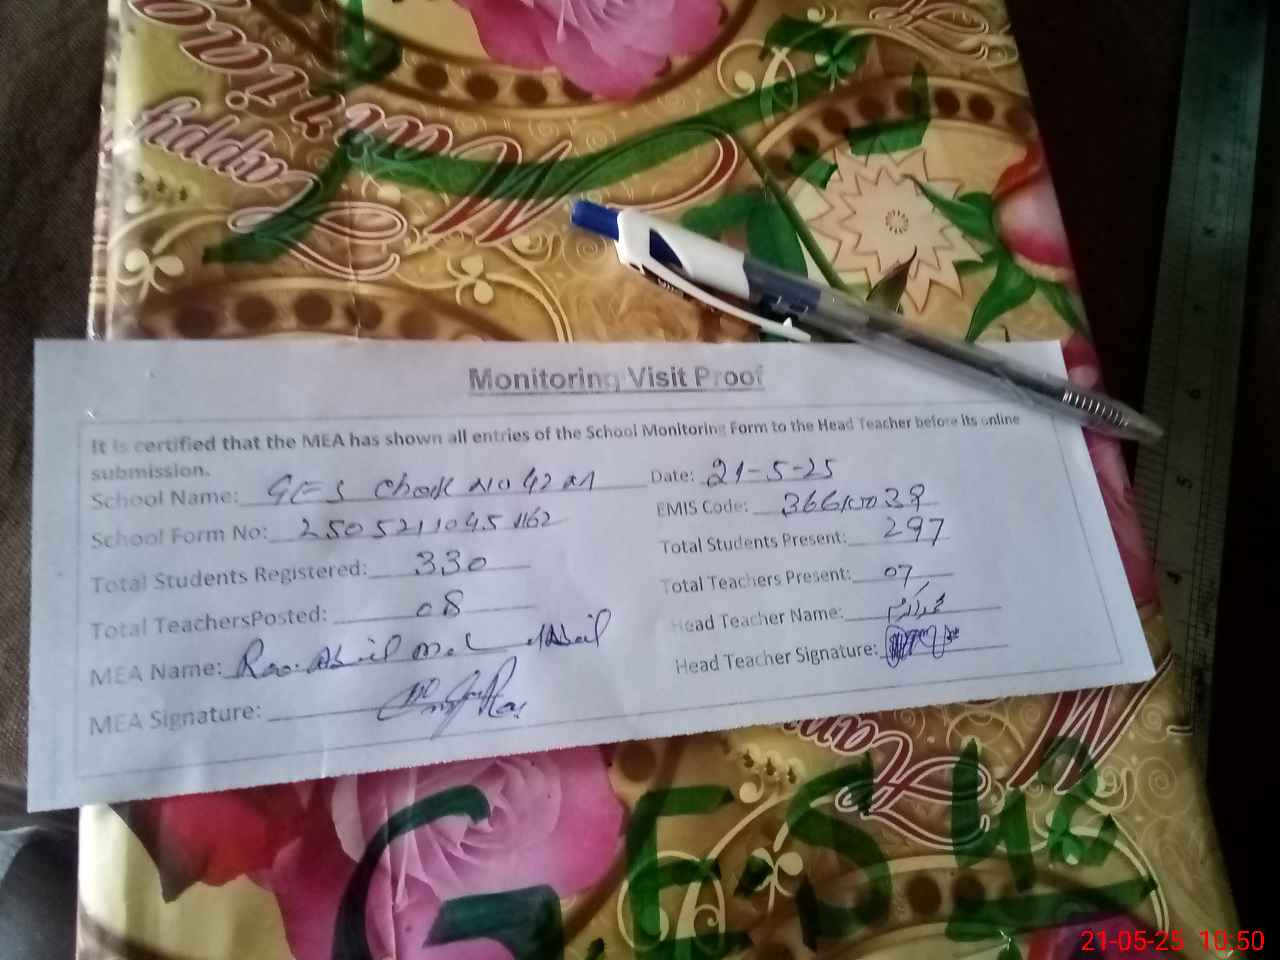 Happy Marria
Monitoring Visit Proof
It is certified that the MEA has shown all entries of the School Monitoring Form to the Head Teacher before its online
submission.
School Name: GES Chak No 42
Date: 21-5-25
School Form No:
EMIS Code:
Total Students Registered: 330
Total Students Present: 297
Total TeachersPosted: 08
Total Teachers Present: 07
MEA Name: Rao
Head Teacher Name: محمد اکرم
MEA Signature:
Head Teacher Signature:
GES 42
21-05-25 10:50